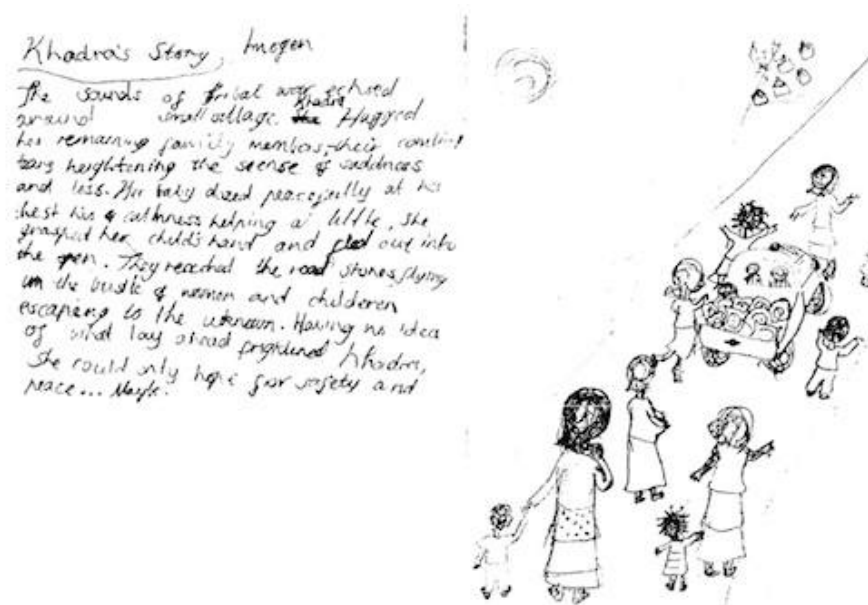 Khadra's Story, Imogen
The sounds of tribal war echoed
around small village. Khadra Hugged
her remaining family members, their
tears heightening the scense of saddness
and loss. Her baby dozed peacefully at his
chest his calmness helping a little, she
grasped her child's hand and fled out into
the open. They reached the road stones flying
in the bustle of women and childeren
escaping to the unknown. Having no idea
of what lay ahead frightened Khadra,
She could only hope for safety and
peace... Maybe.